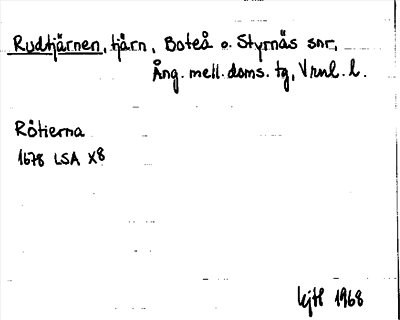 Rudtjärnen, tjärn, Boteå o. Styrnäs snr,
Ång. mell. doms. tg, Vrnl. l.
Rötierna
1678 LSA X8
kjtl 1968